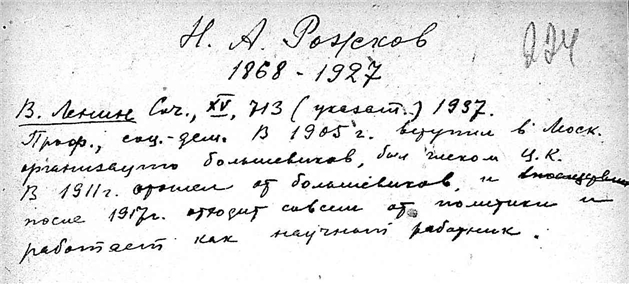 Н. А. Рожков
224
1868 - 1927
В. Ленин Соч., XV, 713 (указат.) 1937.
Проф., соц.-дем. В 1905 г. вступил в Моск.
организацию большевиков, был членом Ц.К.
В 1911 г. отошел от большевиков, и впоследствии
после 1917г. отходит совсем от политики и
работает как научный работник.